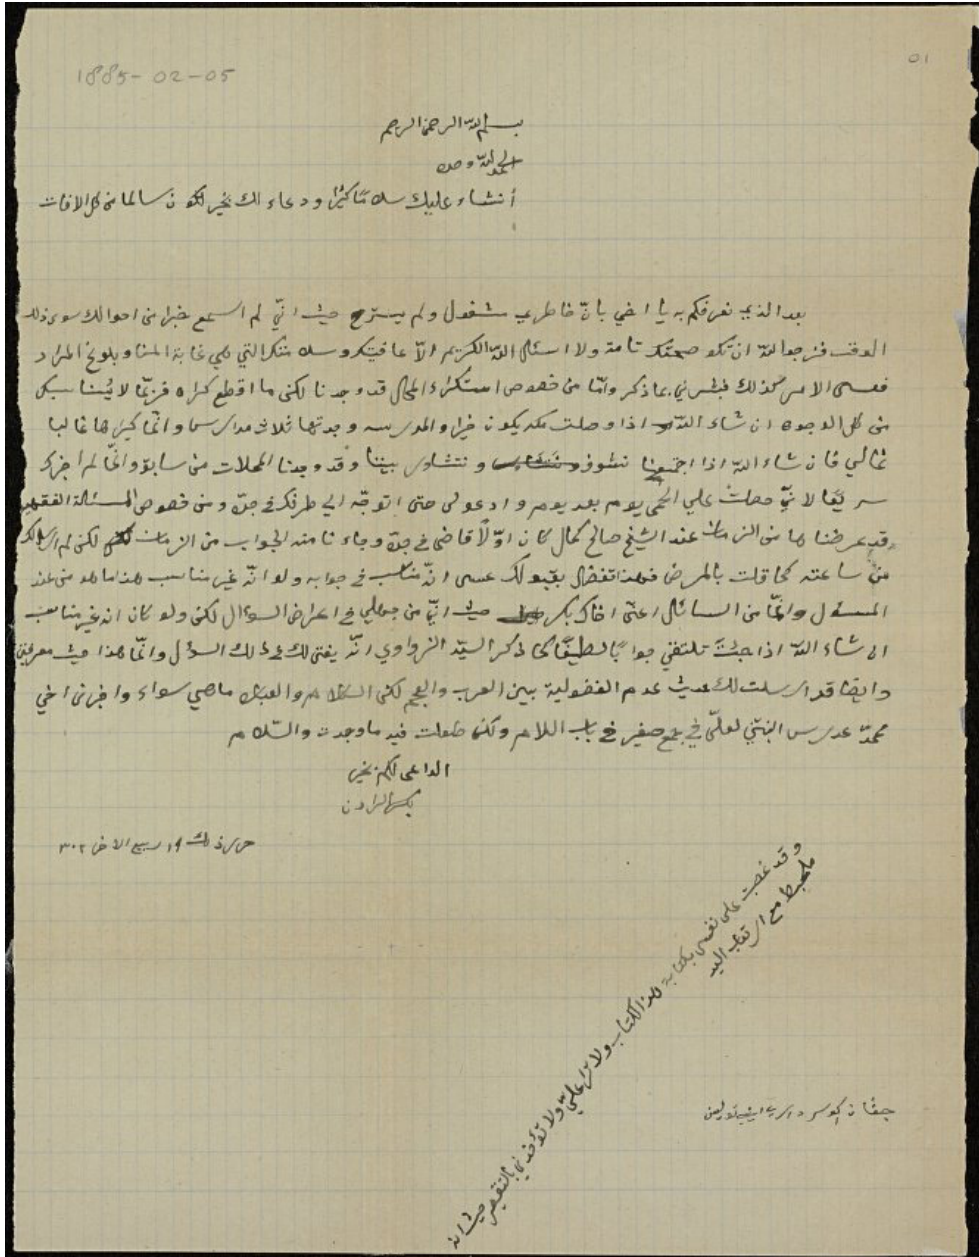 01
1885-02-05
بسم الله الرحمن الرحيم
الحمد لله وحده
أنشاء عليك سلاما كثيرا ودعاء لك بخير لتكون سالما من كل الافات
بعد الذي نعرفكم به يا اخي بانّ خاطري مشغول ولم يسترح حيث انّي لم اسمع خبرا من احوالك سوى ذلك
الوقت فنرجو الله ان تكو صحتك تامة ولا اسئال الله الكريم الاّ عافيتك وسلامتك التي هي غاية المنا وبلوغ المراد
فعسى الامر كذلك فبشرني بما ذكر وأمّا من خصوص استكراء المحال قد وجدنا لكن ما اقطع كراه فربّما لا يُناسبك
من كل الوجوه ان شاء الله اذا وصلت مكه يكون خيرا والمدرسه وجدتها ثلاث مدارس وانّما كراها غالبا
غالي فان شاء الله اذا اجتمعنا نشوف ونتشاور بيننا وقد وجدنا المحلات من سابق وانّما لم اخبرك
سريعًا لانّي حصلتْ علي الحمّى يوم بعد يوم وادعو لى حتى اتوجّه الى طرفك في جدّه ومن خصوص المسئالة الفقهيه
قد عرضناها من الزمان عند الشيخ صالح كمال كان اوّلاً قاضى في جدّه وجاءنا منه الجواب من الزمان لكن لم ارسلك
من ساعته كما قلت بالمرض فهذا تفضل بقبولك عسى انّه مناسب في جوابه ولو انّه غير مناسب هذا ما هو من عند
المسئول وانّما من السائل اعنى اخاك بكر حيث انّي من جهلي في اعراض السؤال لكن ولو كان انه غير مناسب
ان شاء الله اذا جئتَ تلتقي جوابًا لطيفًا كما ذكر السيّد الزواوي انّه يفتى لك في ذلك السؤل وانّما هذا حيث معرفتى
وايضا قد ارسلت لك حديث عدم الفضولية بين العرب والعجم لكن الكلام والعبك ماهي سواء واخبرني اخي
محمّد عدريس البنتني لعلّى في جمع صغير في باب اللام ولكن طلعت فيه ما وجدت والسّلام
الداعى لكم بخير
حرر ذلك ١٩ ربيع الاخر ٣٠٢
وقد غصبت على نفسى بكتابة هذا الكتاب ولا عليّ ولا تؤخذني بالتقصير حيث انه
مع ارتعاب اليد